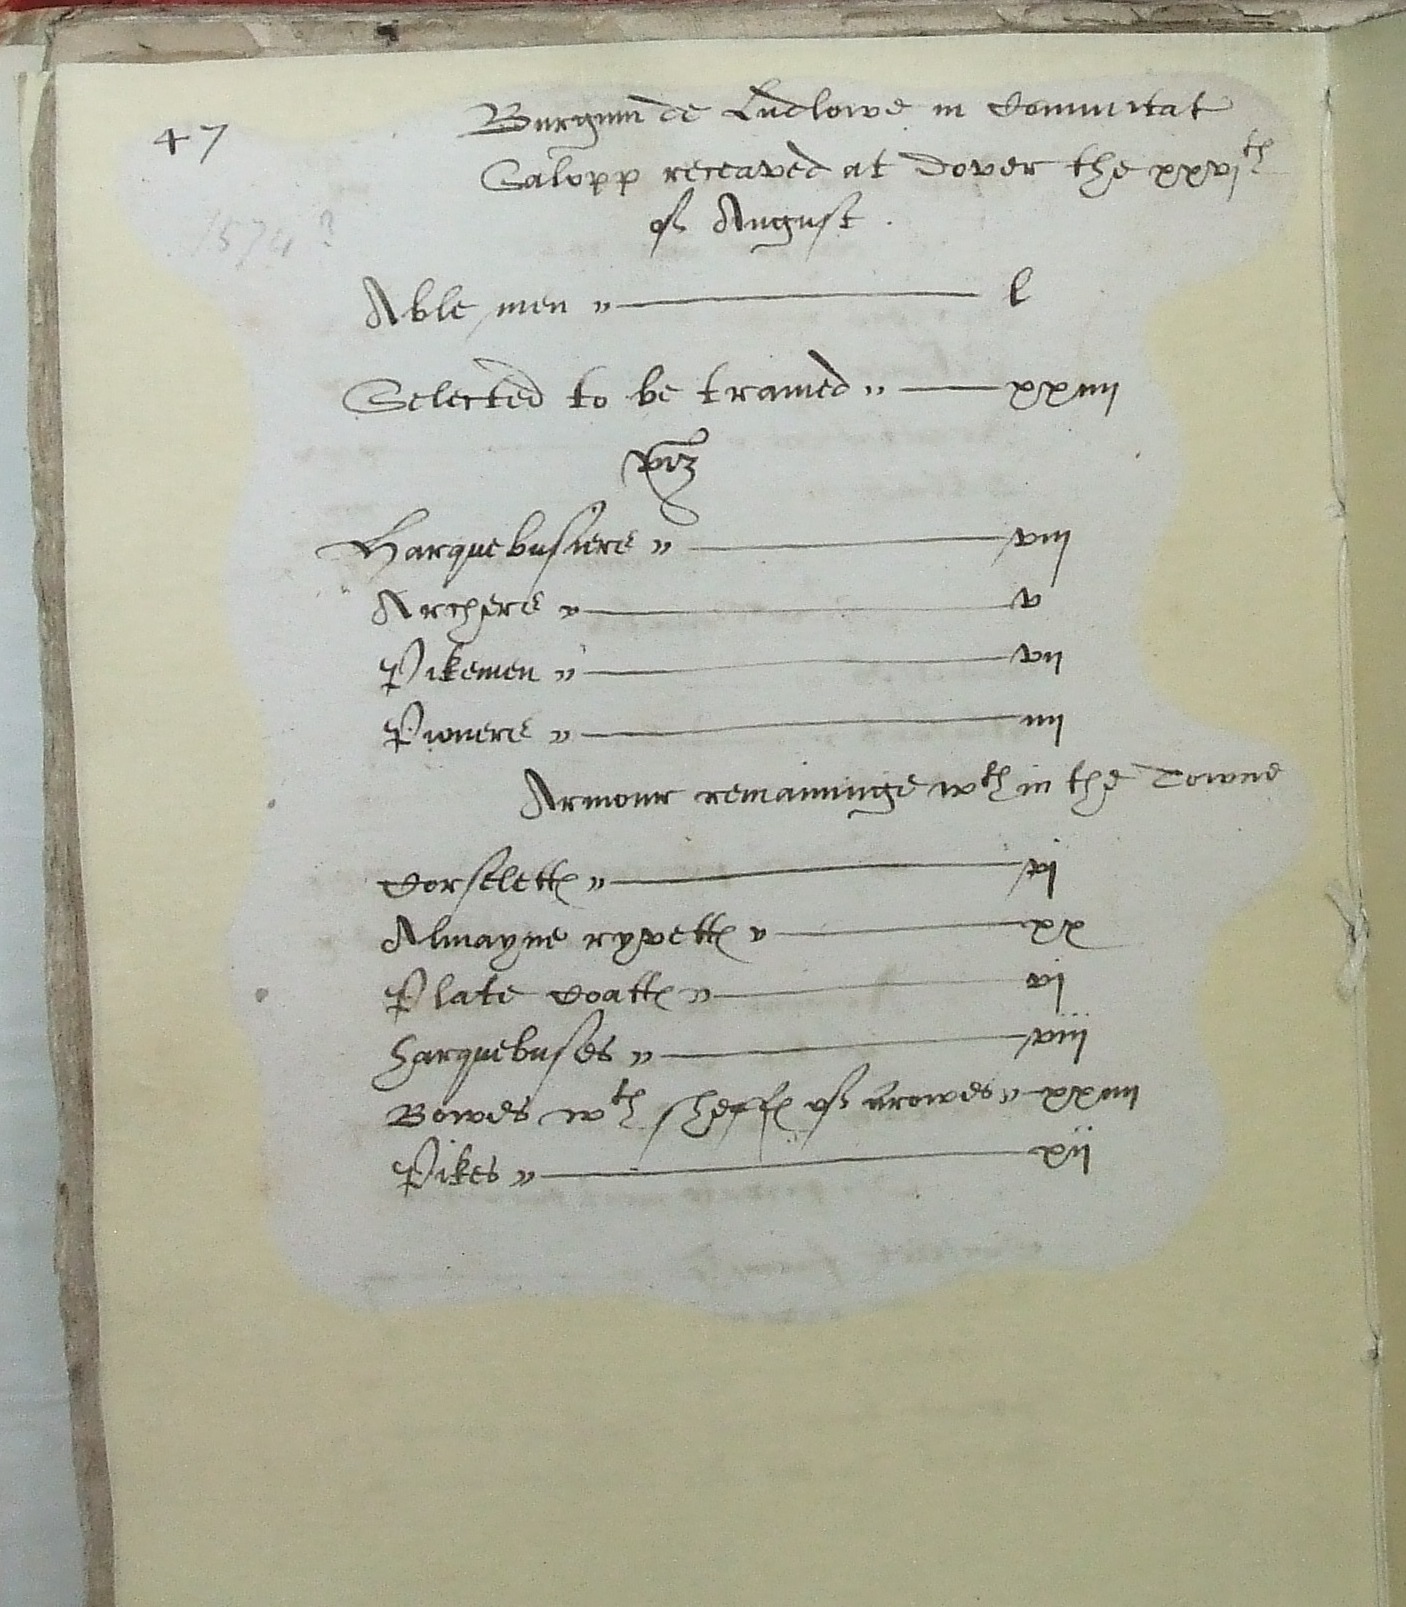 47
Burgum de Ludlowe in Comitat
Salopp receaved at Dover the xxvjth
of August .
1574 ?
Able men „ ——— l
Selected to be trained „ — xxiiij
viz
Harquebusiers „ ——— viij
Archers „ ——— v
Pikemen „ ——— vij
Pioners „ ——— iiij
Armour remaininge wth in the Towne
Corseletts „ ——— vj
Almayne ryvetts „ ——— xx
Plate Coatts „ ——— vj
harquebuses „ ——— viij
Bowes wth sheffs of arrowes „ — xxiiij
Pikes „ ——— xij